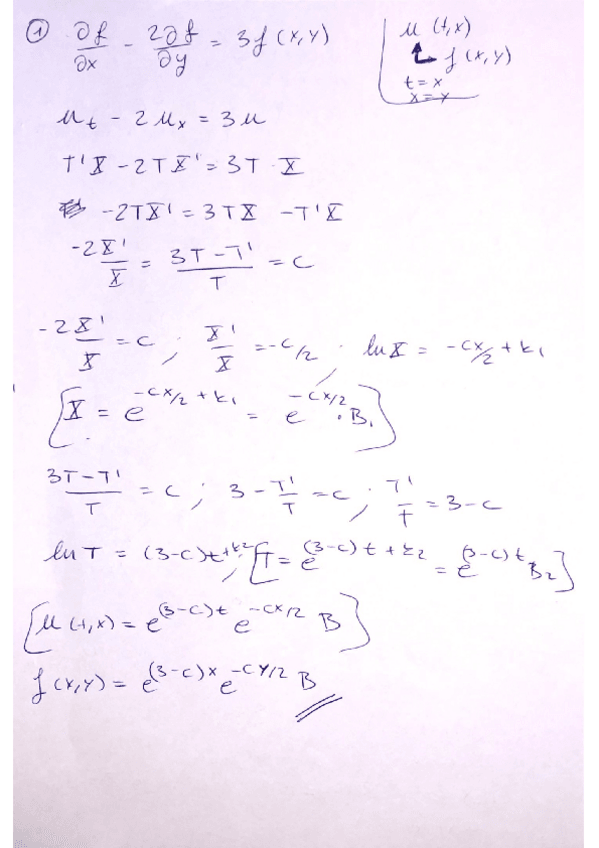 ① ∂f/∂x - 2∂f/∂y = 3f(x,y)
u(t,x)
f(x,y)
t=x
x=y
u_t - 2u_x = 3u
T'X - 2TX' = 3T·X
-2TX' = 3TX - T'X
-2X'/X = (3T-T')/T = c
-2X'/X = c ; X'/X = -c/2 ; ln X = -cx/2 + k₁
[X = e^(-cx/2 + k₁) = e^(-cx/2)·B₁]
(3T-T')/T = c ; 3 - T'/T = c ; T'/T = 3-c
ln T = (3-c)t+k₂ ; [T = e^((3-c)t+k₂) = e^((3-c)t) B₂]
[u(t,x) = e^((3-c)t) e^(-cx/2) B]
f(x,y) = e^((3-c)x) e^(-cy/2) B